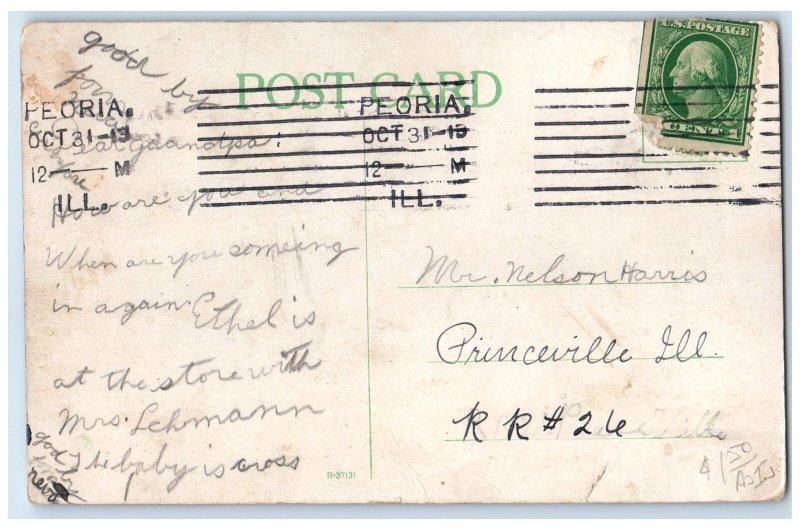 good by
for
POST CARD
U.S. POSTAGE
CENT
PEORIA,
OCT 31-13
12- M
ILL.
PEORIA,
OCT 31-13
12- M
ILL.
Dear Gaandpa:
How are you and
When are you someing
in again. Ethel is
at the store with
Mrs. Lehmann
The baby is cross
Mr. Nelson Harris
Princeville Ill.
RR#26
R-37131